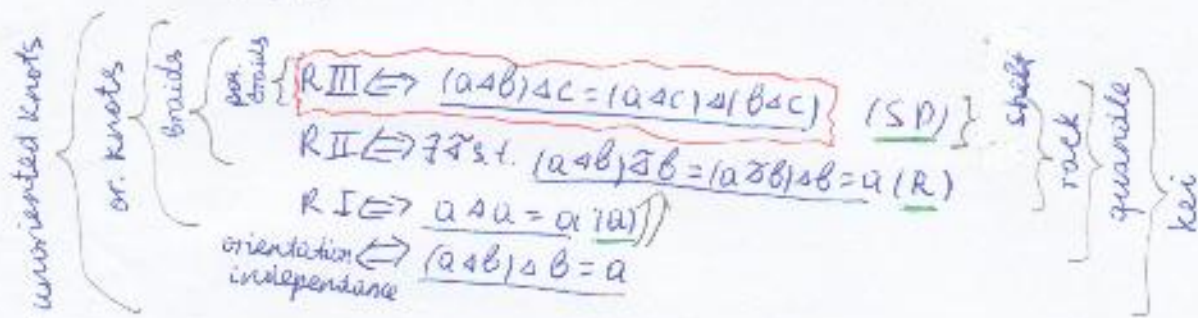 unoriented knots
or. knots
braids
pos. braids
R III ⇔ (a◁b)◁c = (a◁c)◁(b◁c) (SD)
R II ⇔ ∃ ◁̃ s.t. (a◁b)◁̃b = (a◁̃b)◁b = a (R)
R I ⇔ a◁a = a (Q)
orientation independance ⇔ (a◁b)◁b = a
shelf
rack
quandle
kei